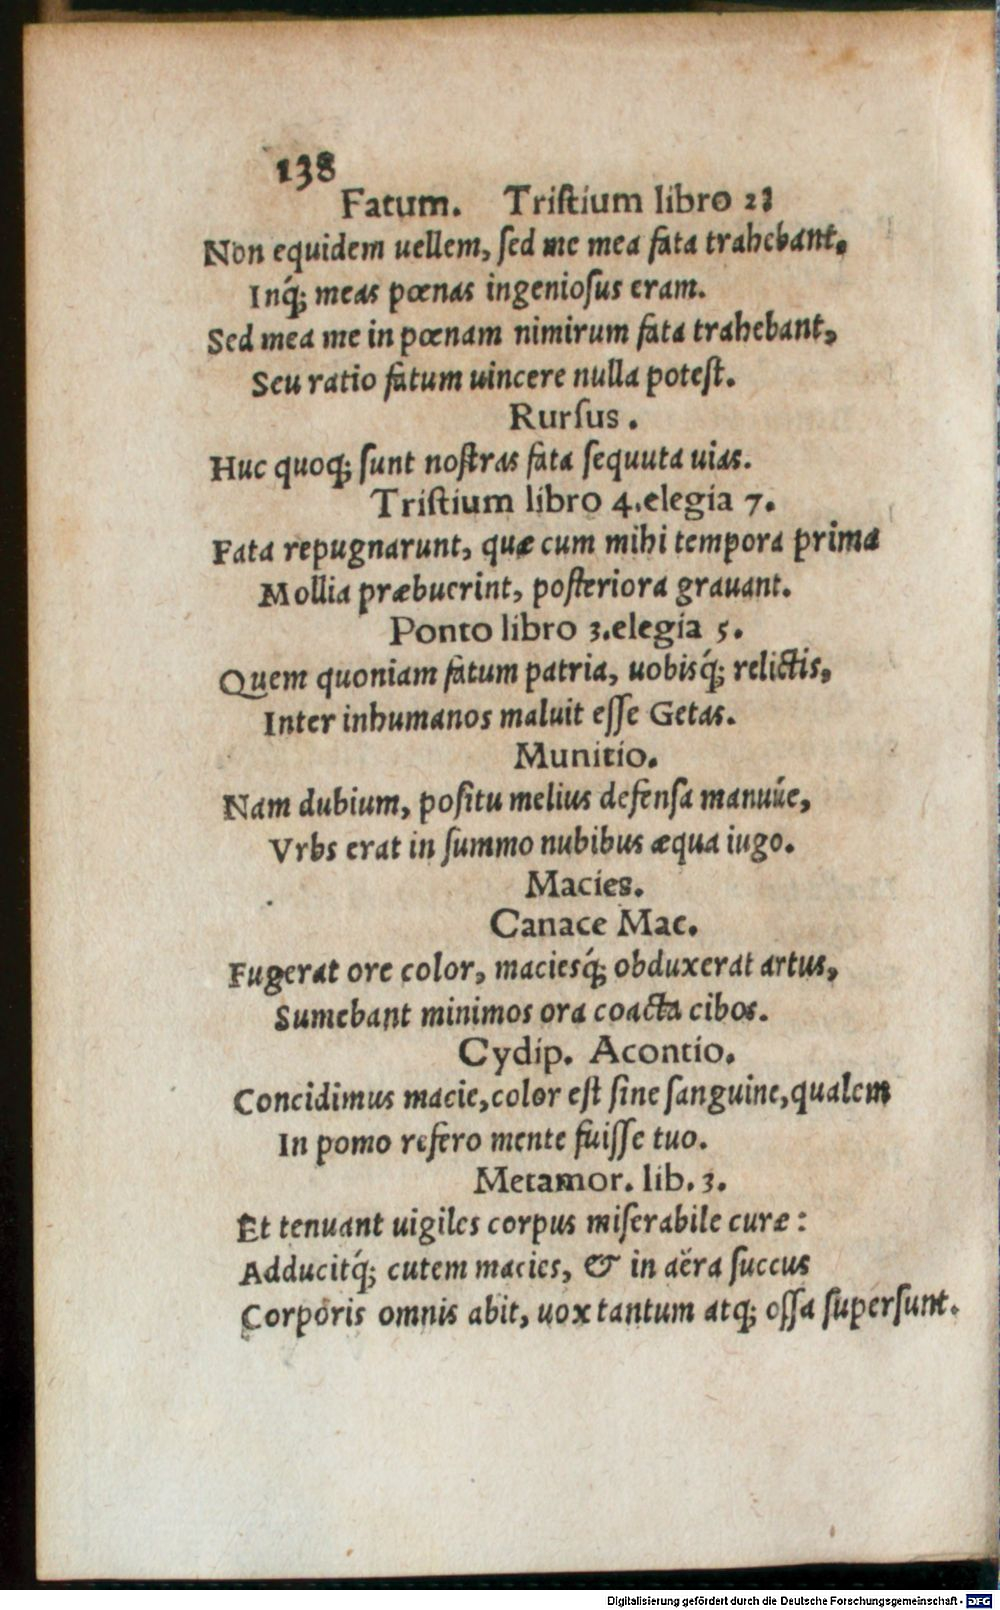 138
Fatum. Tristium libro 2:
Non equidem uellem, sed me mea fata trahebant.
Inq́; meas pœnas ingeniosus eram.
Sed mea me in pœnam nimirum fata trahebant,
Seu ratio fatum uincere nulla potest.
Rursus.
Huc quoq; sunt nostras fata sequuta uias.
Tristium libro 4. elegia 7.
Fata repugnarunt, quæ cum mihi tempora prima
Mollia præbuerint, posteriora grauant.
Ponto libro 3. elegia 5.
Quem quoniam fatum patria, uobisq́; relictis,
Inter inhumanos maluit esse Getas.
Munitio.
Nam dubium, positu melius defensa manuúe,
Vrbs erat in summo nubibus æqua iugo.
Macies.
Canace Mac.
Fugerat ore color, maciesq́; obduxerat artus,
Sumebant minimos ora coacta cibos.
Cydip. Acontio.
Concidimus macie, color est sine sanguine, qualem
In pomo refero mente fuisse tuo.
Metamor. lib. 3.
Et tenuant uigiles corpus miserabile curæ:
Adducitq́; cutem macies, & in aëra succus
Corporis omnis abit, uox tantum atq; ossa supersunt.
Digitalisierung gefördert durch die Deutsche Forschungsgemeinschaft - DFG